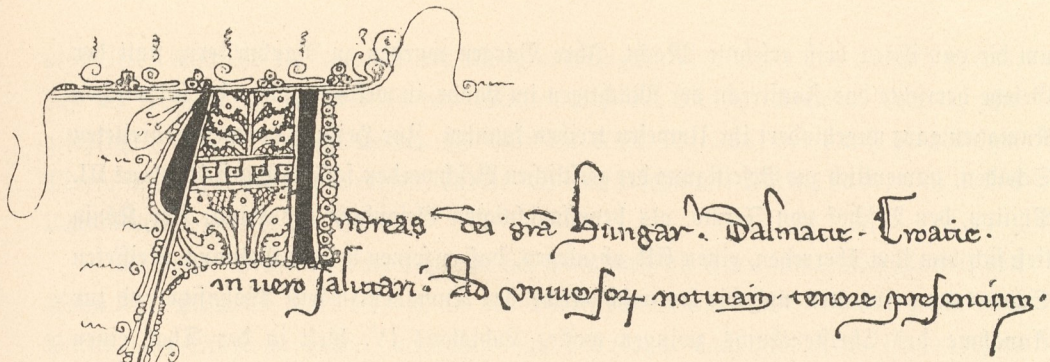 Andreas dei gr̄a hungar̄. Dalmacie. Croacie.
in vero salutari. Ad universorꝝ noticiam tenore presencium.